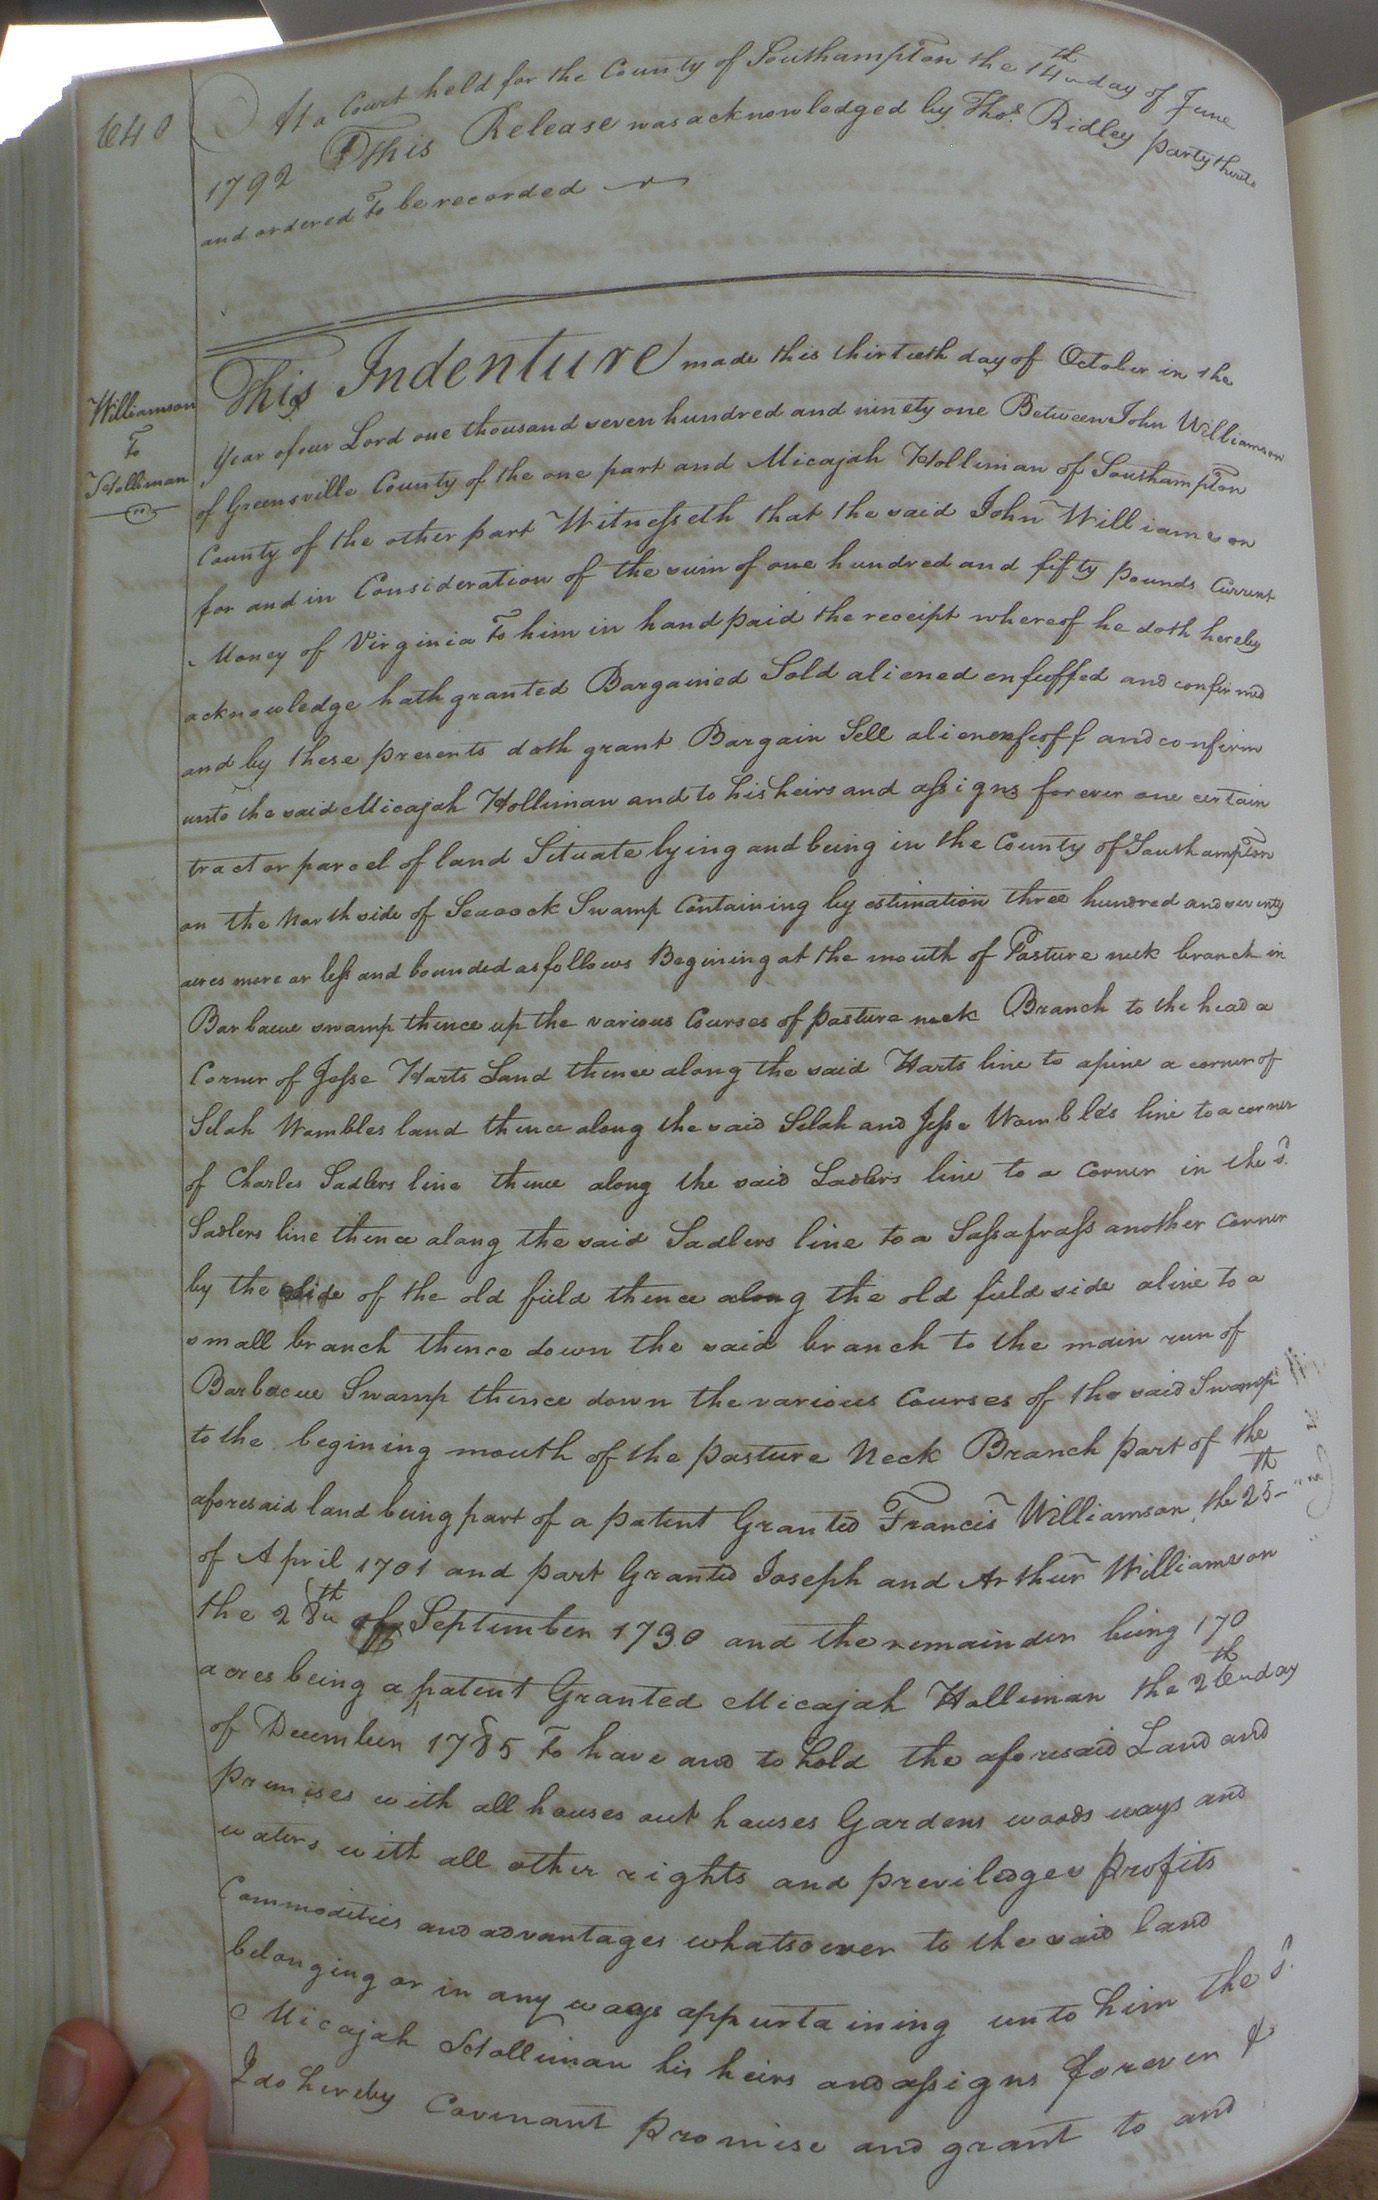 640
At a Court held for the County of Southampton the 14th day of June
1792 This Release was acknowledged by Thos. Ridley party thereto
and ordered to be recorded
Williamson
to
Holliman
This Indenture made this thirtieth day of October in the
Year of our Lord one thousand seven hundred and ninety one Between John Williamson
of Greensville County of the one part and Micajah Holliman of Southampton
County of the other part Witnesseth that the said John Williamson
for and in Consideration of the sum of one hundred and fifty pounds Current
Money of Virginia to him in hand paid the receipt whereof he doth hereby
acknowledge hath granted Bargained Sold aliened enfeoffed and confirmed
and by these presents doth grant Bargain Sell alien enfeoff and confirm
unto the said Micajah Holliman and to his heirs and assigns forever one certain
tract or parcel of land Situate lying and being in the County of Southampton
on the North side of Seacock Swamp Containing by estimation three hundred and seventy
acres more or less and bounded as follows Begining at the mouth of Pasture neck branch in
Barbacue swamp thence up the various Courses of pasture neck Branch to the head a
Corner of Jesse Harts Land thence along the said Harts line to a pine a corner of
Selah Wombles land thence along the said Selah and Jesse Wombles line to a corner
of Charles Sadlers line thence along the said Sadlers line to a Corner in the sd.
Sadlers line thence along the said Sadlers line to a Sassafrass another Corner
by the side of the old field thence along the old field side a line to a
small branch thence down the said branch to the main run of
Barbacue Swamp thence down the various Courses of the said Swamp
to the begining mouth of the pasture Neck Branch part of the
aforesaid land being part of a patent Granted Francis Williamson the 25th
of April 1701 and part Granted Joseph and Arthur Williamson
the 28th of September 1730 and the remainder being 170
acres being a patent Granted Micajah Holliman the 26th day
of December 1785 to have and to hold the aforesaid Land and
premises with all houses out houses Gardens woods ways and
waters with all other rights and previledges profits
Commodities and advantages whatsoever to the said land
belonging or in any ways appurtaining unto him the sd.
Micajah Holliman his heirs and assigns forever &
I do hereby Covenant promise and grant to and